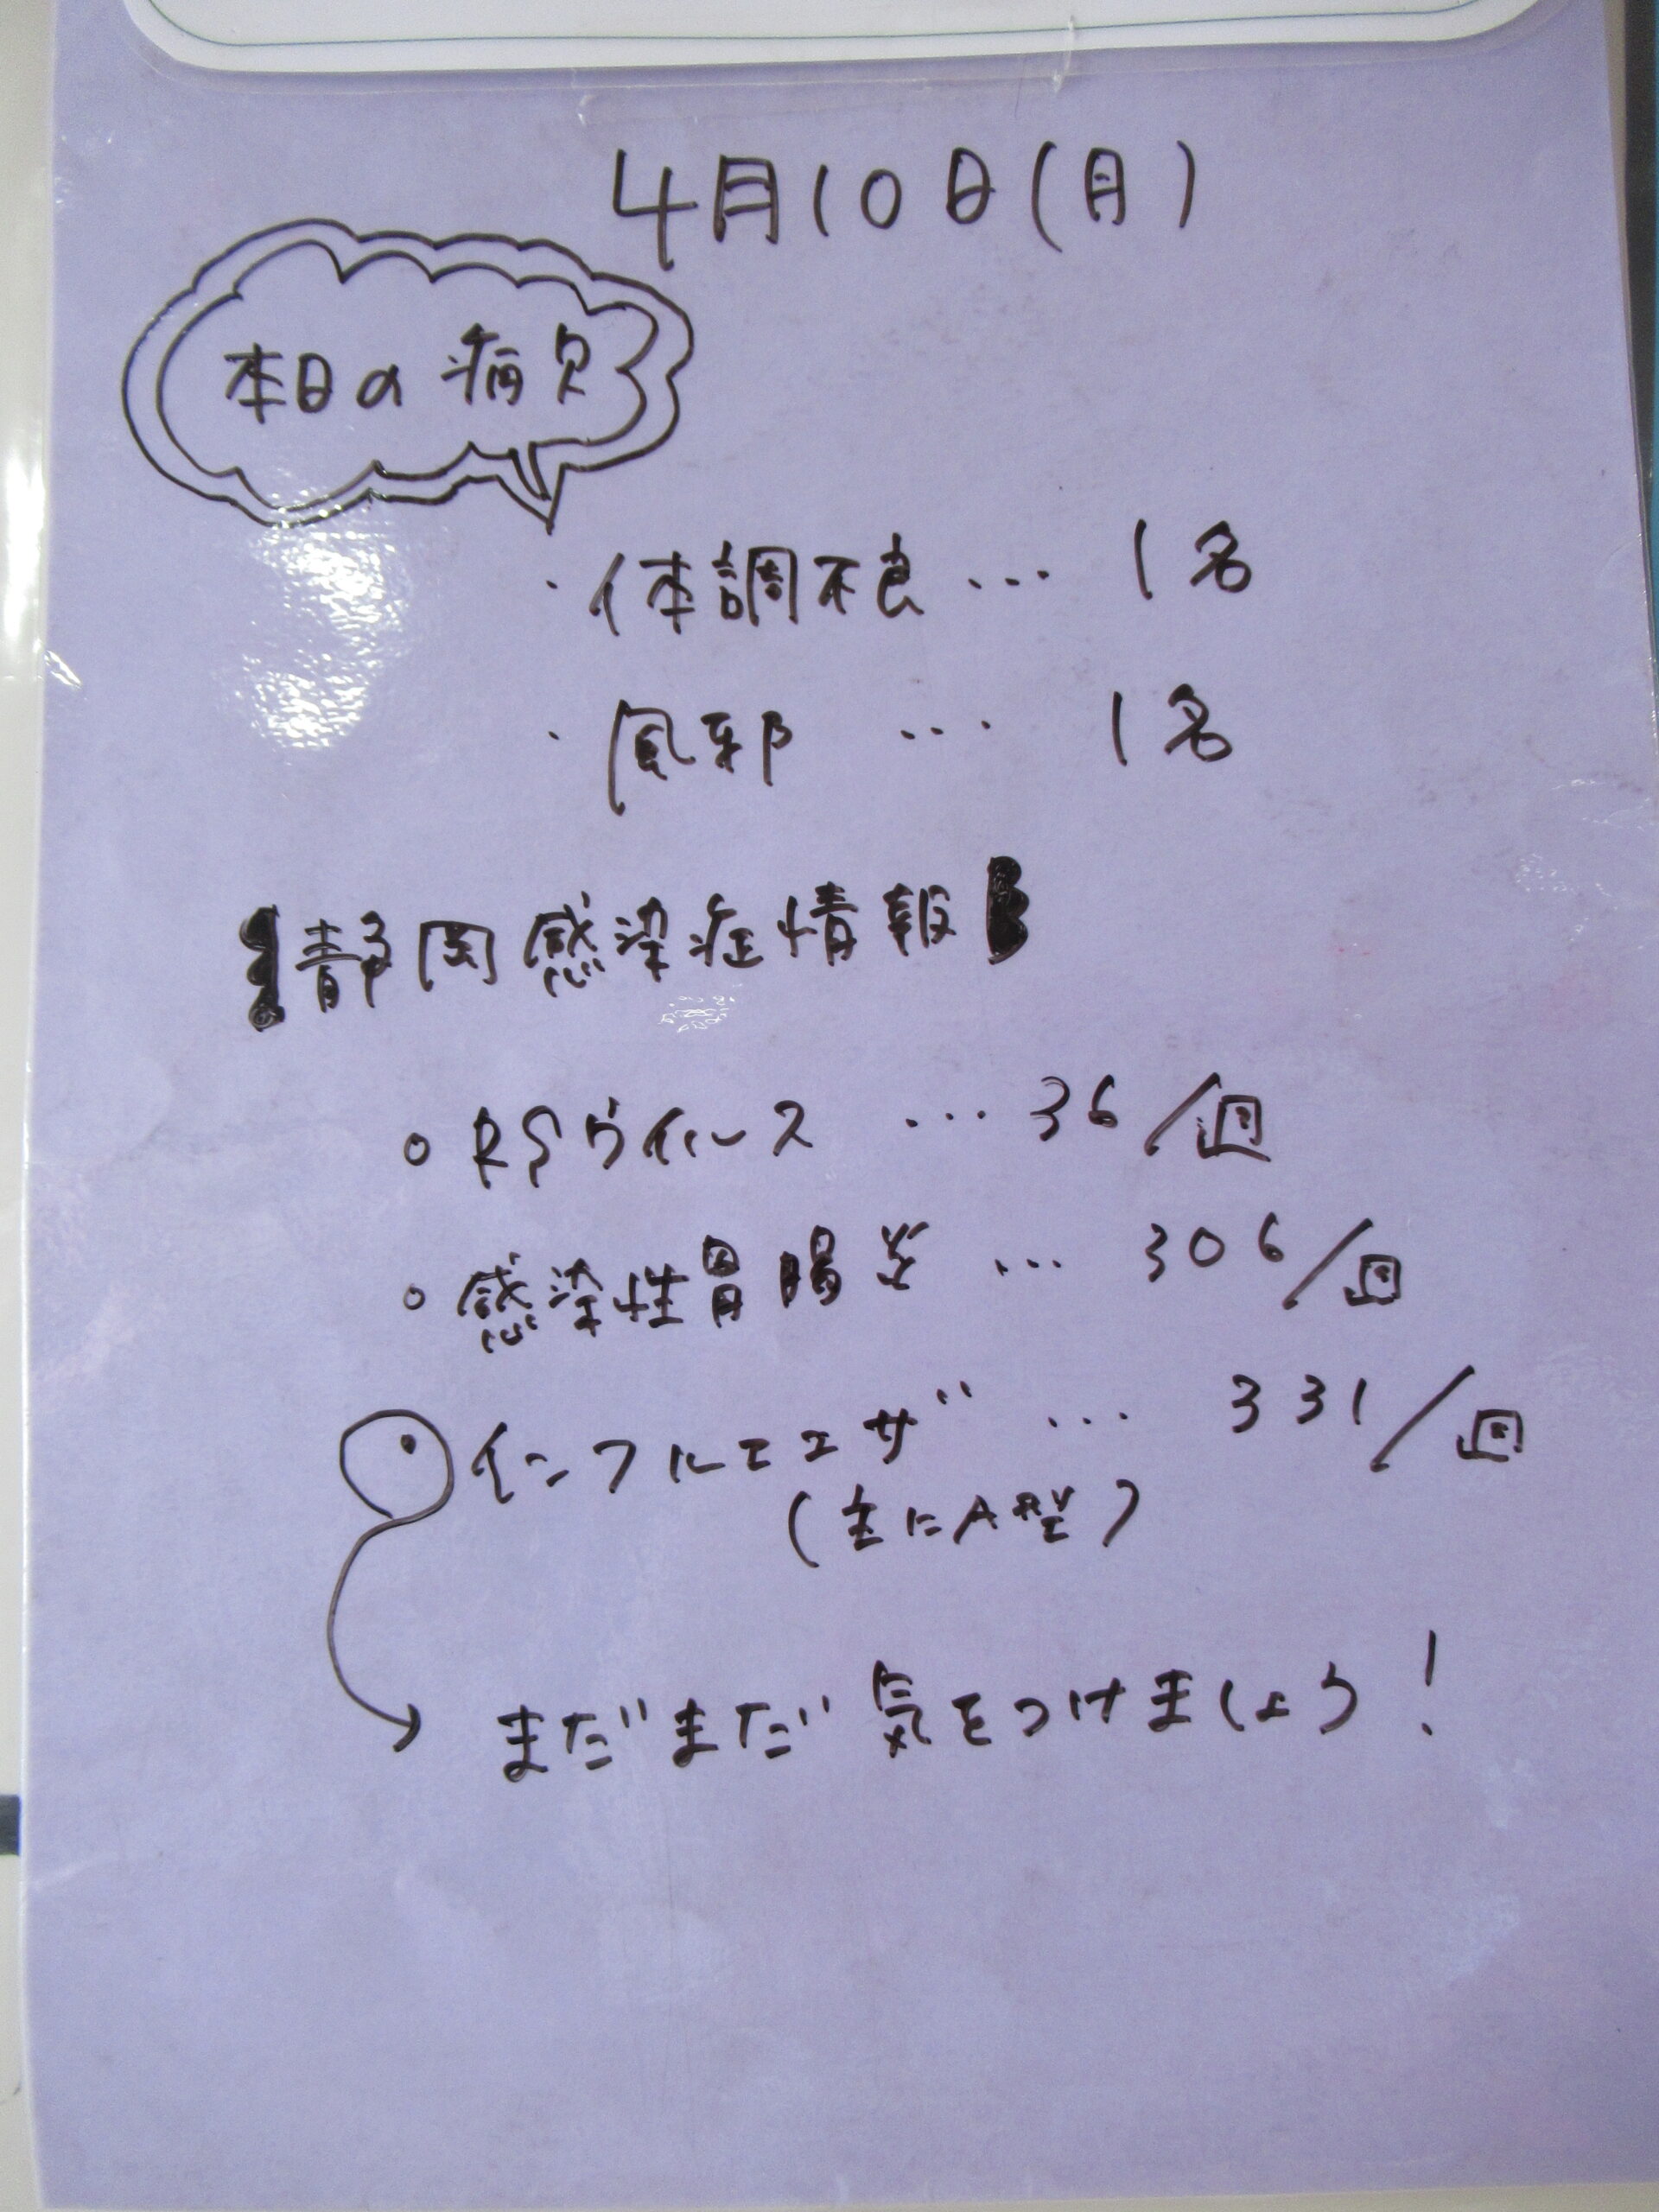 4月10日(月)
本日の病欠
・体調不良 … 1名
・風邪 … 1名
【静岡感染症情報】
○RSウイルス … 36/週
○感染性胃腸炎 … 306/週
インフルエエザ … 331/週
(主にA型)
まだまだ気をつけましょう!